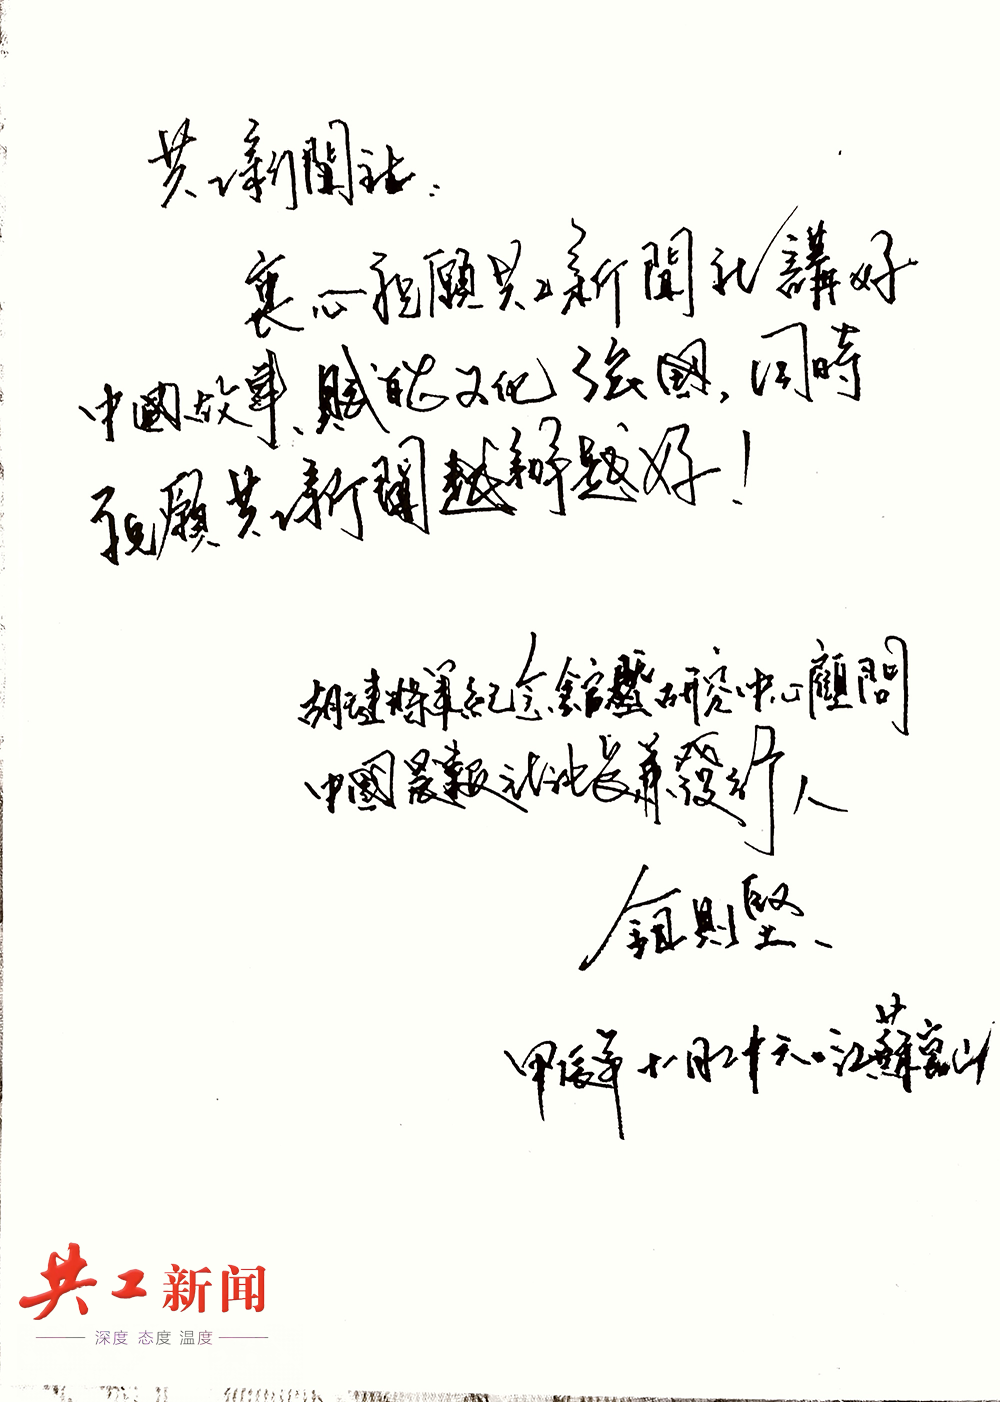 共工新聞社：
衷心祝願共工新聞社講好
中國故事、賦能文化強國，同時
祝願共工新聞越辦越好！
胡璉將軍紀念館暨研究中心顧問
中國晨報社社長兼發行人
則堅
甲辰年十月 江蘇崑山
共工新闻
深度 态度 温度